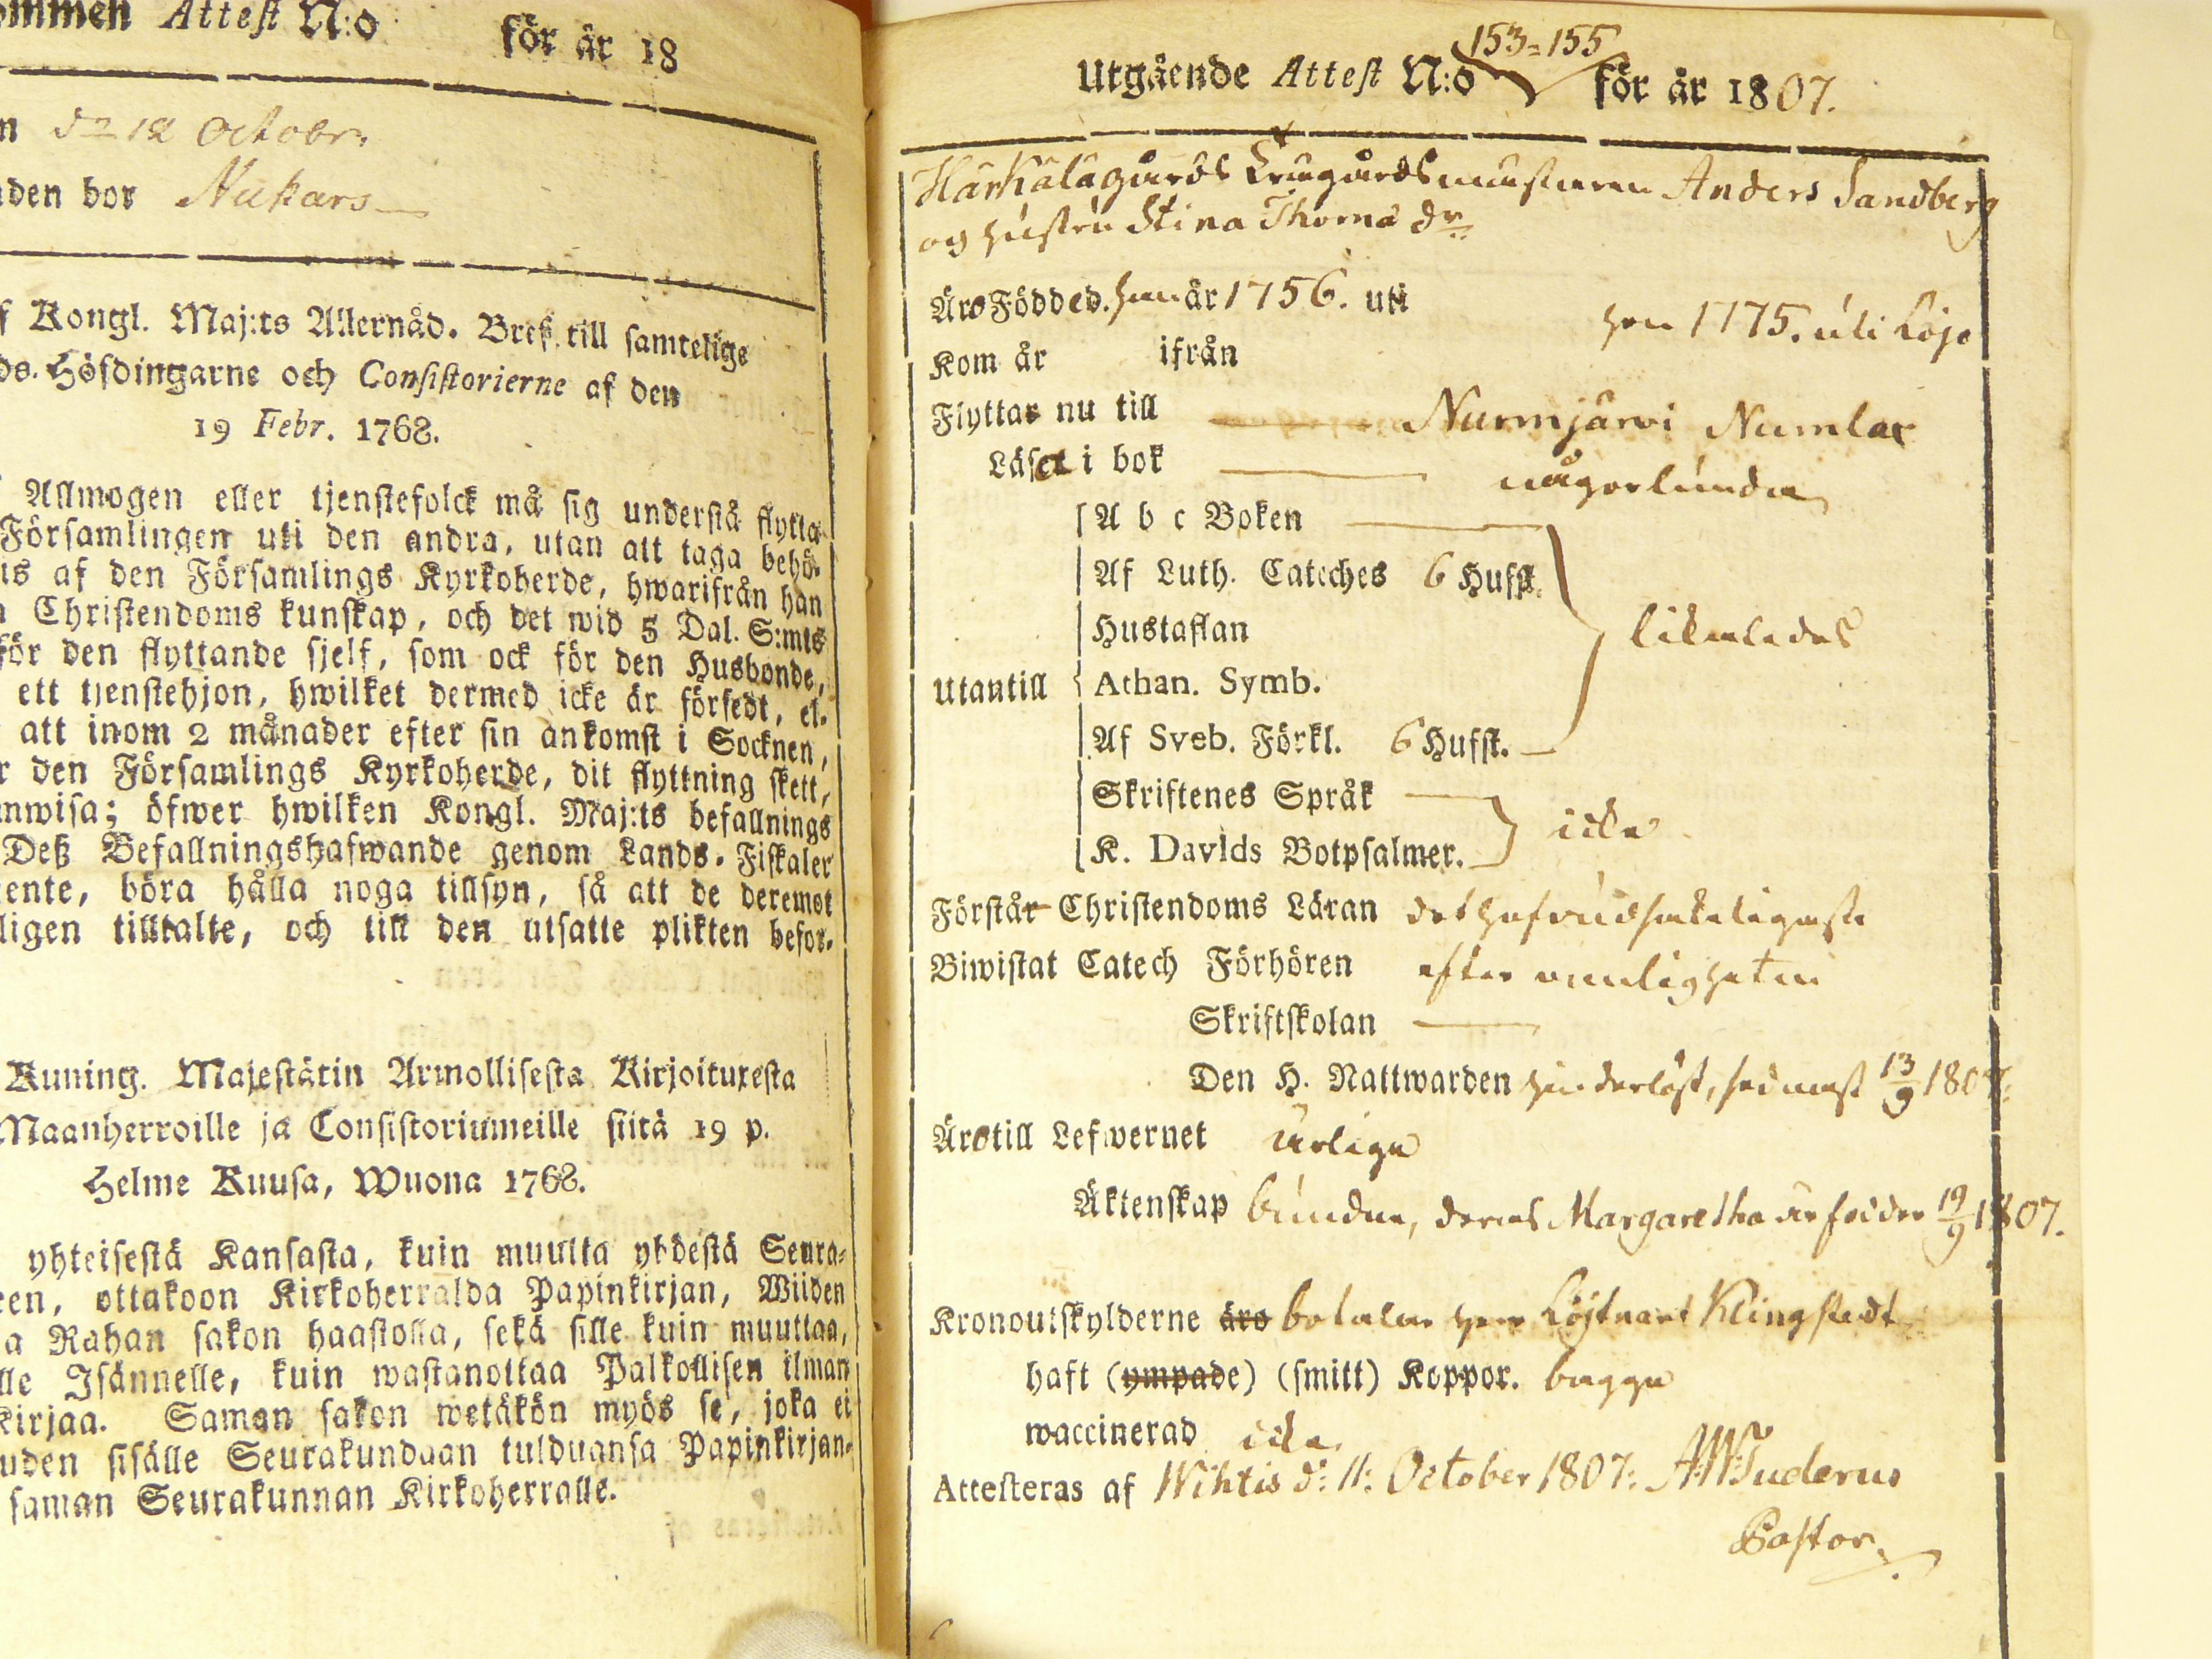 ommen Attest N:o för år 18
n d. 12 Octobr.
nden bor Nukars
f Kongl. Maj:ts Allernåd. Bref till samtelige
ds-Höfdingarne och Consistorierne af den
19 Febr. 1768.
Allmogen eller tjenstefolck må sig understå flytta
Församlingen uti den andra, utan att taga behö-
is af den Församlings Kyrkoherde, hwarifrån han
Christendoms kunskap, och det wid 5 Dal. S:mts
för den flyttande sjelf, som ock för den Husbonde,
ett tjenstehjon, hwilket dermed icke är försedt, el-
att inom 2 månader efter sin ankomst i Socknen,
r den Församlings Kyrkoherde, dit flyttning skett,
nwisa; öfwer hwilken Kongl. Maj:ts befallnings
Deß Befallningshafwande genom Lands-Fiskaler
ente, böra hålla noga tillsyn, så att de deremot
ligen tilltalte, och till den utsatte plikten befor-
Kuning. Majestätin Armollisesta Kirjoituxesta
Maanherroille ja Consistoriumeille siitä 19 p.
Helme Kuusa, Wuona 1768.
yhteisestä Kansasta, kuin muulta yhdestä Seura-
een, ottakoon Kirkoherralda Papinkirjan, Wiiden
a Rahan sakon haastolla, sekä sille kuin muuttaa,
lle Isännelle, kuin wastanottaa Palkollisen ilman
kirjaa. Saman sakon wetäkön myös se, joka ei
uden sisälle Seurakundaan tulduansa Papinkirjan-
saman Seurakunnan Kirkoherralle.
Utgående Attest N:o 153=155 för år 1807.
Härkälägårds Anders Sandberg
og hustru Stina Thoms dr.
Äro Födde d. han år 1756. uti hon 1775. uti Lojo
Kom år ifrån
Flyttar nu till Nurmjärwi Numlax
Läsa i bok någorlunda
A b c Boken
Af Luth. Cateches 6 Hufst.
Hustaflan likaledes
Utantill Athan. Symb.
Af Sveb. Förkl. 6 Hufst.
Skriftenes Språk
K. Davids Botpsalmer. icke
Förstår Christendoms Läran det hufvudsakeligaste
Biwistat Catech Förhören efter vanligheten
Skriftskolan
Den H. Nattwarden hinderlöst, sednast 13/9 1807.
Äro till Lefwernet ärliga
Äktenskap bundna, deras Margaretha är född 19/9 1807.
Kronoutskylderne äro betalar herr Löjtnant Klingstedt
haft (ympade) (smitt) Koppor. bägge
waccinerad icke
Attesteras af Wihtis d: 11: October 1807: AWTuderus
Pastor.